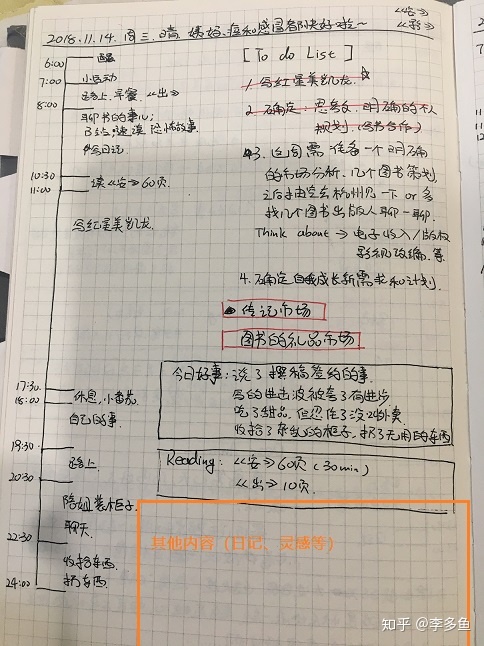 <<容>>
<<彩>>
2018.11.14. 周三. 晴 姨妈、痘和感冒都快好啦~
6:00 醒
7:00 小运动
路上. 早餐. <<出>>
8:00 聊书的事儿;
写日记
10:30 读<<容>>60页.
11:00
写红星美凯龙
17:30
休息, 小番茄
18:00
自己的事
19:30
路上
20:30
陪姐装柜子.
聊天
22:30
收拾东西.
扔东西.
24:00
[To do List]
1. 写红星美凯龙.
2. 确定: 思考 明确的个人
规划. (写书合作)
3. 这周需 准备一个明确
的市场分析. 几个图书策划,
之后抽空去杭州见一下 or 多
找几个图书出版人聊一聊.
Think about → 电子收入/版权
影视改编. 等.
4. 确定自我成长新需求和计划.
传记市场
图书的礼品市场
今日好事: 说了撰稿签约的事.
写的 被夸了有进步
吃了甜品, 但忍住了没吃外卖.
收拾了杂乱的柜子, 扔了无用的东西
Reading: <<容>>60页 (30min)
<<出>>10页.
其他内容（日记、灵感等）
知乎 @李多鱼